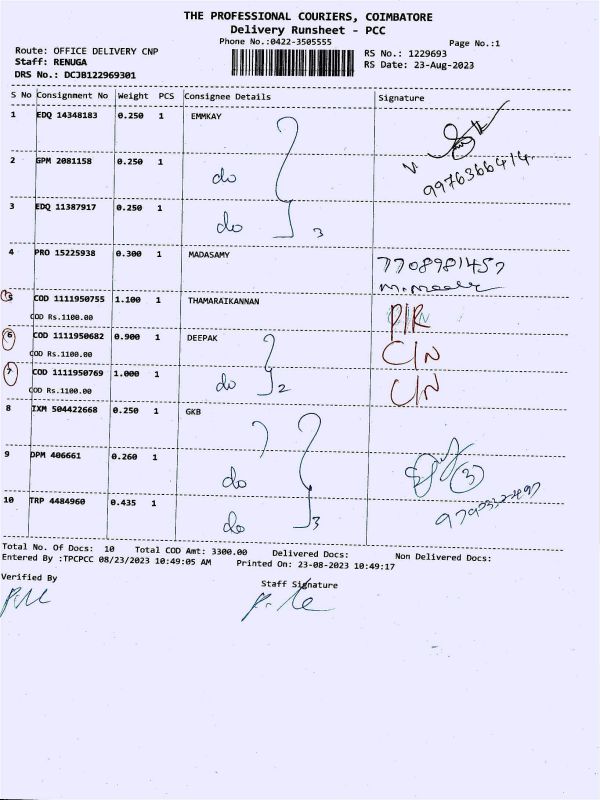 THE PROFESSIONAL COURIERS, COIMBATORE
Delivery Runsheet - PCC
Phone No.:0422-3505555
Page No.:1
Route: OFFICE DELIVERY CNP
RS No.: 1229693
Staff: RENUGA
RS Date: 23-Aug-2023
DRS No.: DCJB122969301
S No Consignment No Weight PCS Consignee Details Signature
1 EDQ 14348183 0.250 1 EMMKAY
2 GPM 2081158 0.250 1 do
9976366414
3 EDQ 11387917 0.250 1 do 3
4 PRO 15225938 0.300 1 MADASAMY
7708981457
5 COD 1111950755 1.100 1 THAMARAIKANNAN P/R
COD Rs.1100.00
6 COD 1111950682 0.900 1 DEEPAK C/N
COD Rs.1100.00
7 COD 1111950769 1.000 1 do 2 C/N
COD Rs.1100.00
8 IXM 504422668 0.250 1 GKB
9 DPM 406661 0.260 1 do 3
10 TRP 4484960 0.435 1 do 3
Total No. Of Docs: 10 Total COD Amt: 3300.00 Delivered Docs: Non Delivered Docs:
Entered By :TPCPCC 08/23/2023 10:49:05 AM Printed On: 23-08-2023 10:49:17
Verified By Staff Signature